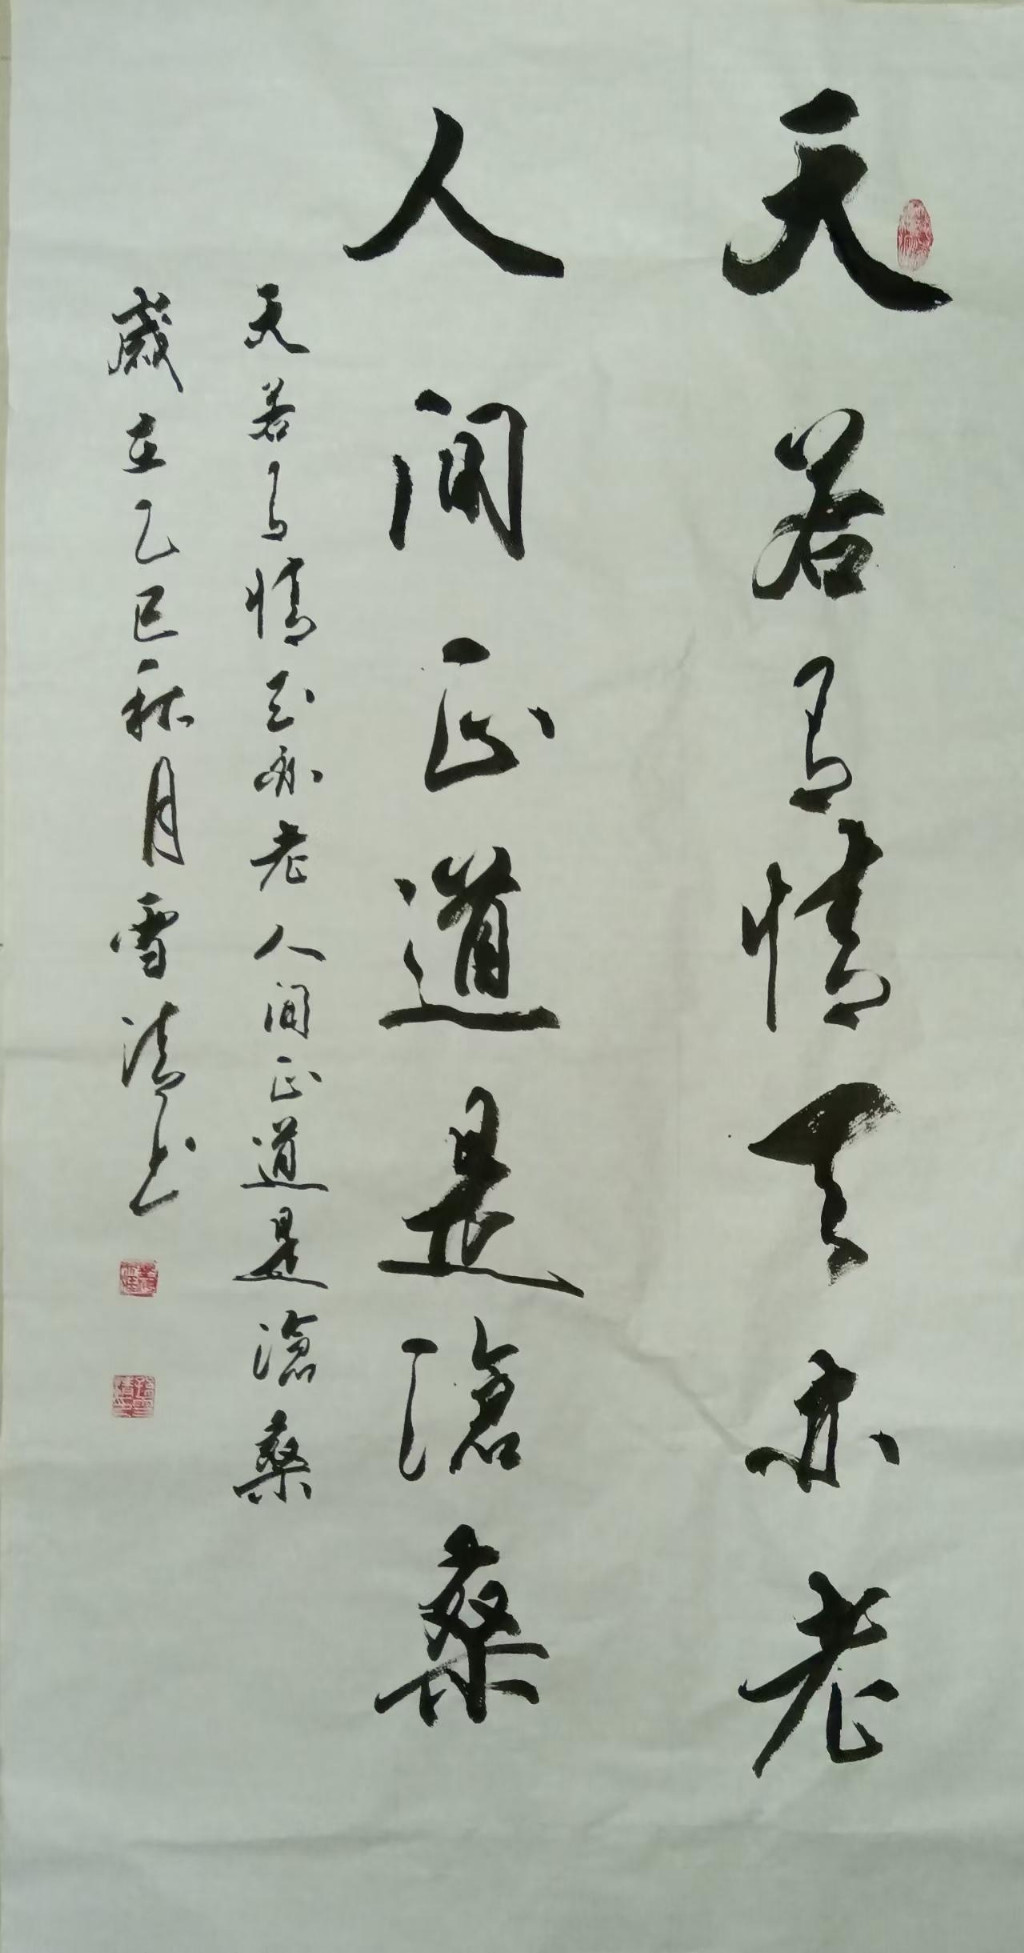 天若有情天亦老
人间正道是滄桑
天若有情天亦老人间正道是滄桑
歲在乙巳秋月雪清书